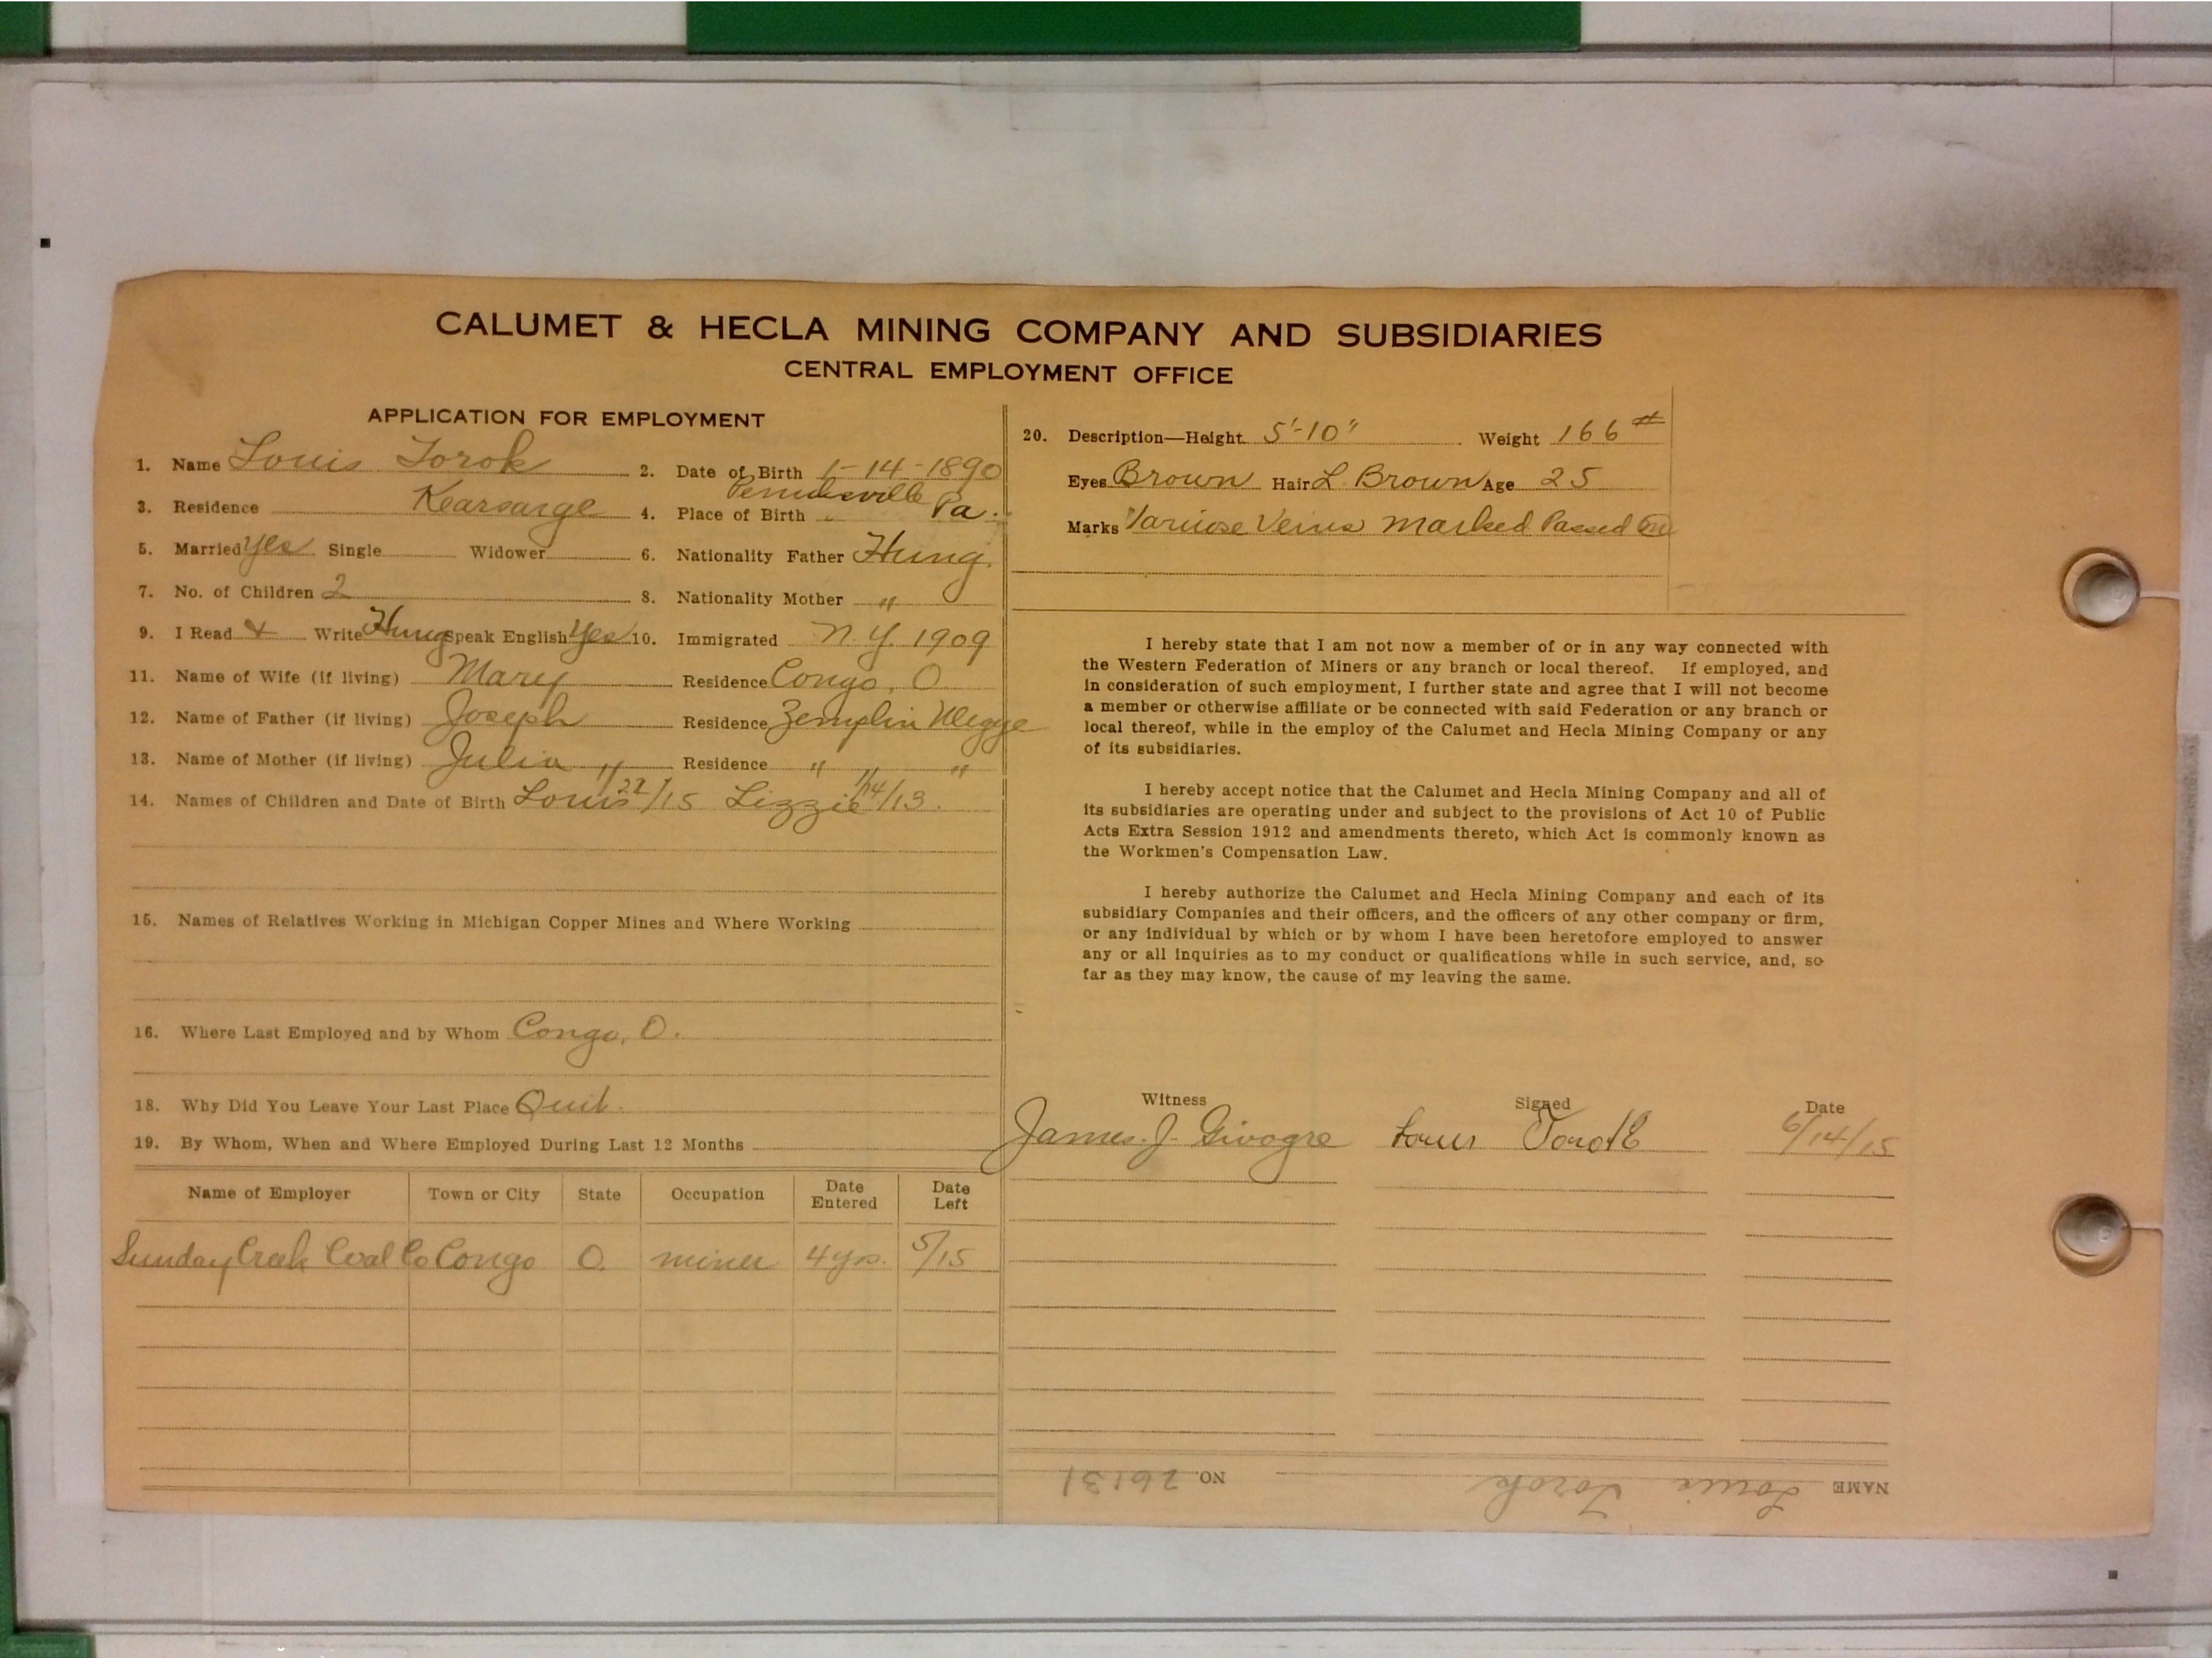 CALUMET & HECLA MINING COMPANY AND SUBSIDIARIES
CENTRAL EMPLOYMENT OFFICE
APPLICATION FOR EMPLOYMENT
1. Name Louis Torok 2. Date of Birth 1-14-1890
3. Residence Kearsarge 4. Place of Birth Pa.
5. Married Yes Single Widower 6. Nationality Father Hung.
7. No. of Children 2 8. Nationality Mother "
9. I Read & Write Hung Speak English Yes 10. Immigrated N.Y. 1909
11. Name of Wife (if living) Mary Residence Congo, O
12. Name of Father (if living) Joseph Residence Zemplin Megye
13. Name of Mother (if living) Julia Residence " " "
14. Names of Children and Date of Birth Louis /15 Lizzie /13.
15. Names of Relatives Working in Michigan Copper Mines and Where Working
16. Where Last Employed and by Whom Congo, O.
18. Why Did You Leave Your Last Place Quit.
19. By Whom, When and Where Employed During Last 12 Months
Name of Employer Town or City State Occupation Date Entered Date Left
Sunday Creek Coal Co Congo O. miner 4 yrs. 5/15
20. Description—Height 5'-10" Weight 166 #
Eyes Brown Hair L. Brown Age 25
Marks Varicose Veins marked Passed
I hereby state that I am not now a member of or in any way connected with
the Western Federation of Miners or any branch or local thereof. If employed, and
in consideration of such employment, I further state and agree that I will not become
a member or otherwise affiliate or be connected with said Federation or any branch or
local thereof, while in the employ of the Calumet and Hecla Mining Company or any
of its subsidiaries.
I hereby accept notice that the Calumet and Hecla Mining Company and all of
its subsidiaries are operating under and subject to the provisions of Act 10 of Public
Acts Extra Session 1912 and amendments thereto, which Act is commonly known as
the Workmen's Compensation Law.
I hereby authorize the Calumet and Hecla Mining Company and each of its
subsidiary Companies and their officers, and the officers of any other company or firm,
or any individual by which or by whom I have been heretofore employed to answer
any or all inquiries as to my conduct or qualifications while in such service, and, so
far as they may know, the cause of my leaving the same.
Witness Signed Date
James J. Louis Torok 6/14/15
NAME Louis Torok NO. 26131